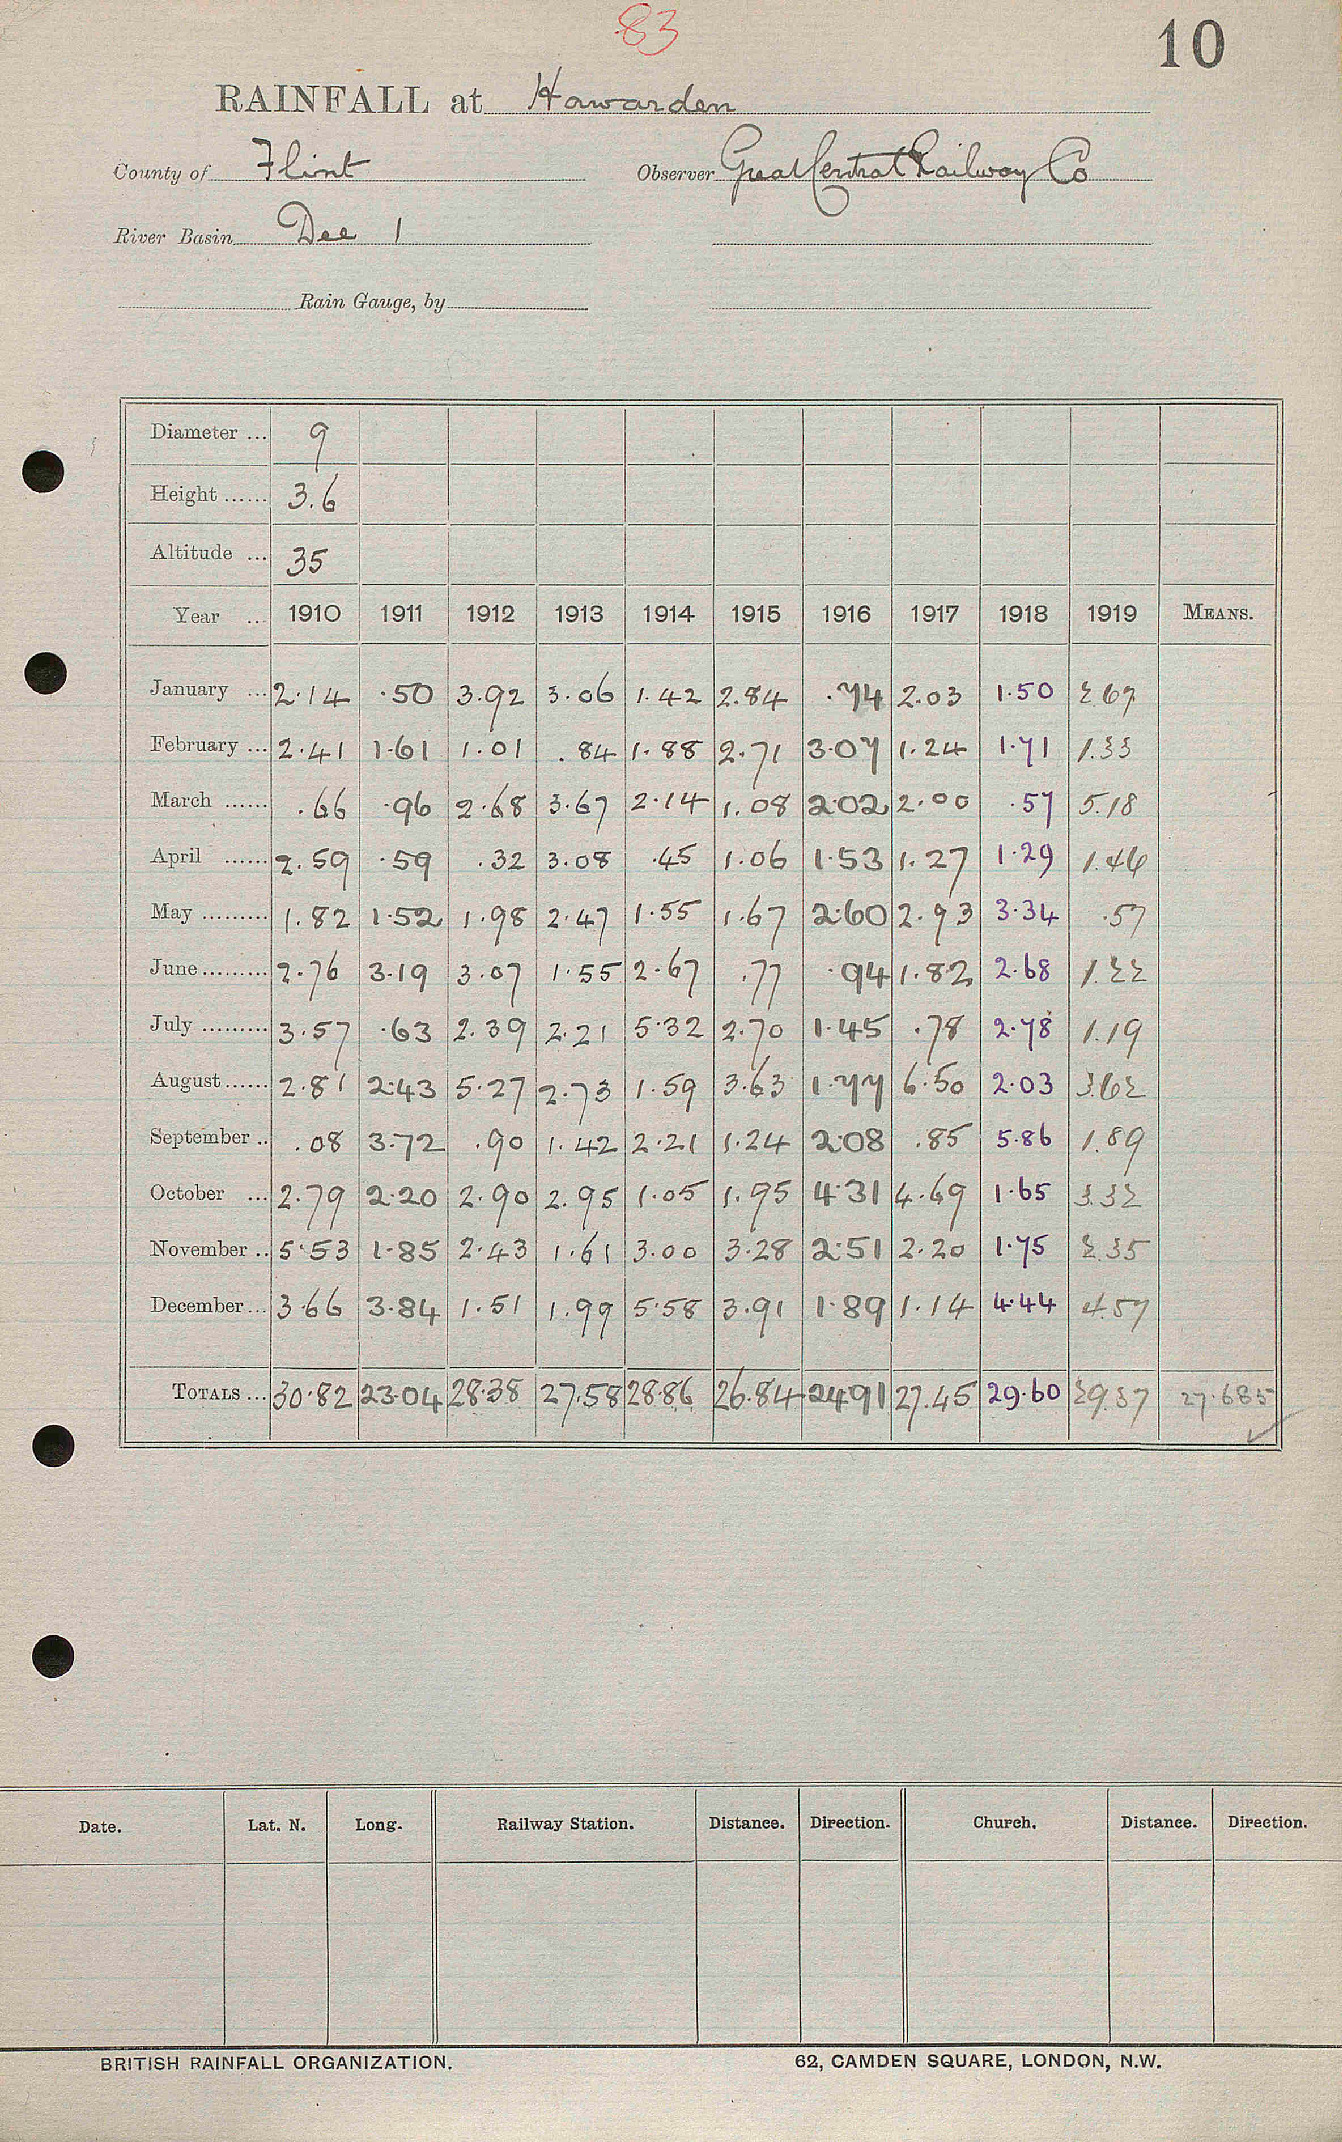 83
10
RAINFALL at Hawarden
County of Flint Observer Great Central Railway Co
River Basin Dee 1
Rain Gauge, by
Diameter ... 9
Height ...... 3.6
Altitude ... 35
Year ... 1910 1911 1912 1913 1914 1915 1916 1917 1918 1919 MEANS.
January ... 2.14 .50 3.92 3.06 1.42 2.84 .74 2.03 1.50 2.67
February ... 2.41 1.61 1.01 .84 1.88 2.71 3.07 1.24 1.71 1.33
March ...... .66 .96 2.68 3.67 2.14 1.08 2.02 2.00 .57 5.18
April ...... 2.59 .59 .32 3.08 .45 1.06 1.53 1.27 1.29 1.46
May ......... 1.82 1.52 1.98 2.47 1.55 1.67 2.60 2.93 3.34 .57
June ......... 2.76 3.19 3.07 1.55 2.67 .77 .94 1.82 2.68 1.22
July ......... 3.57 .63 2.39 2.21 5.32 2.70 1.45 .78 2.78 1.19
August ...... 2.81 2.43 5.27 2.73 1.59 3.63 1.77 6.50 2.03 3.62
September .. .08 3.72 .90 1.42 2.21 1.24 2.08 .85 5.86 1.89
October ... 2.79 2.20 2.90 2.95 1.05 1.95 4.31 4.69 1.65 3.32
November .. 5.53 1.85 2.43 1.61 3.00 3.28 2.51 2.20 1.75 2.35
December ... 3.66 3.84 1.51 1.99 5.58 3.91 1.89 1.14 4.44 4.57
TOTALS ... 30.82 23.04 28.38 27.58 28.86 26.84 24.91 27.45 29.60 29.37 27.685
Date. Lat. N. Long. Railway Station. Distance. Direction. Church. Distance. Direction.
BRITISH RAINFALL ORGANIZATION. 62, CAMDEN SQUARE, LONDON, N.W.